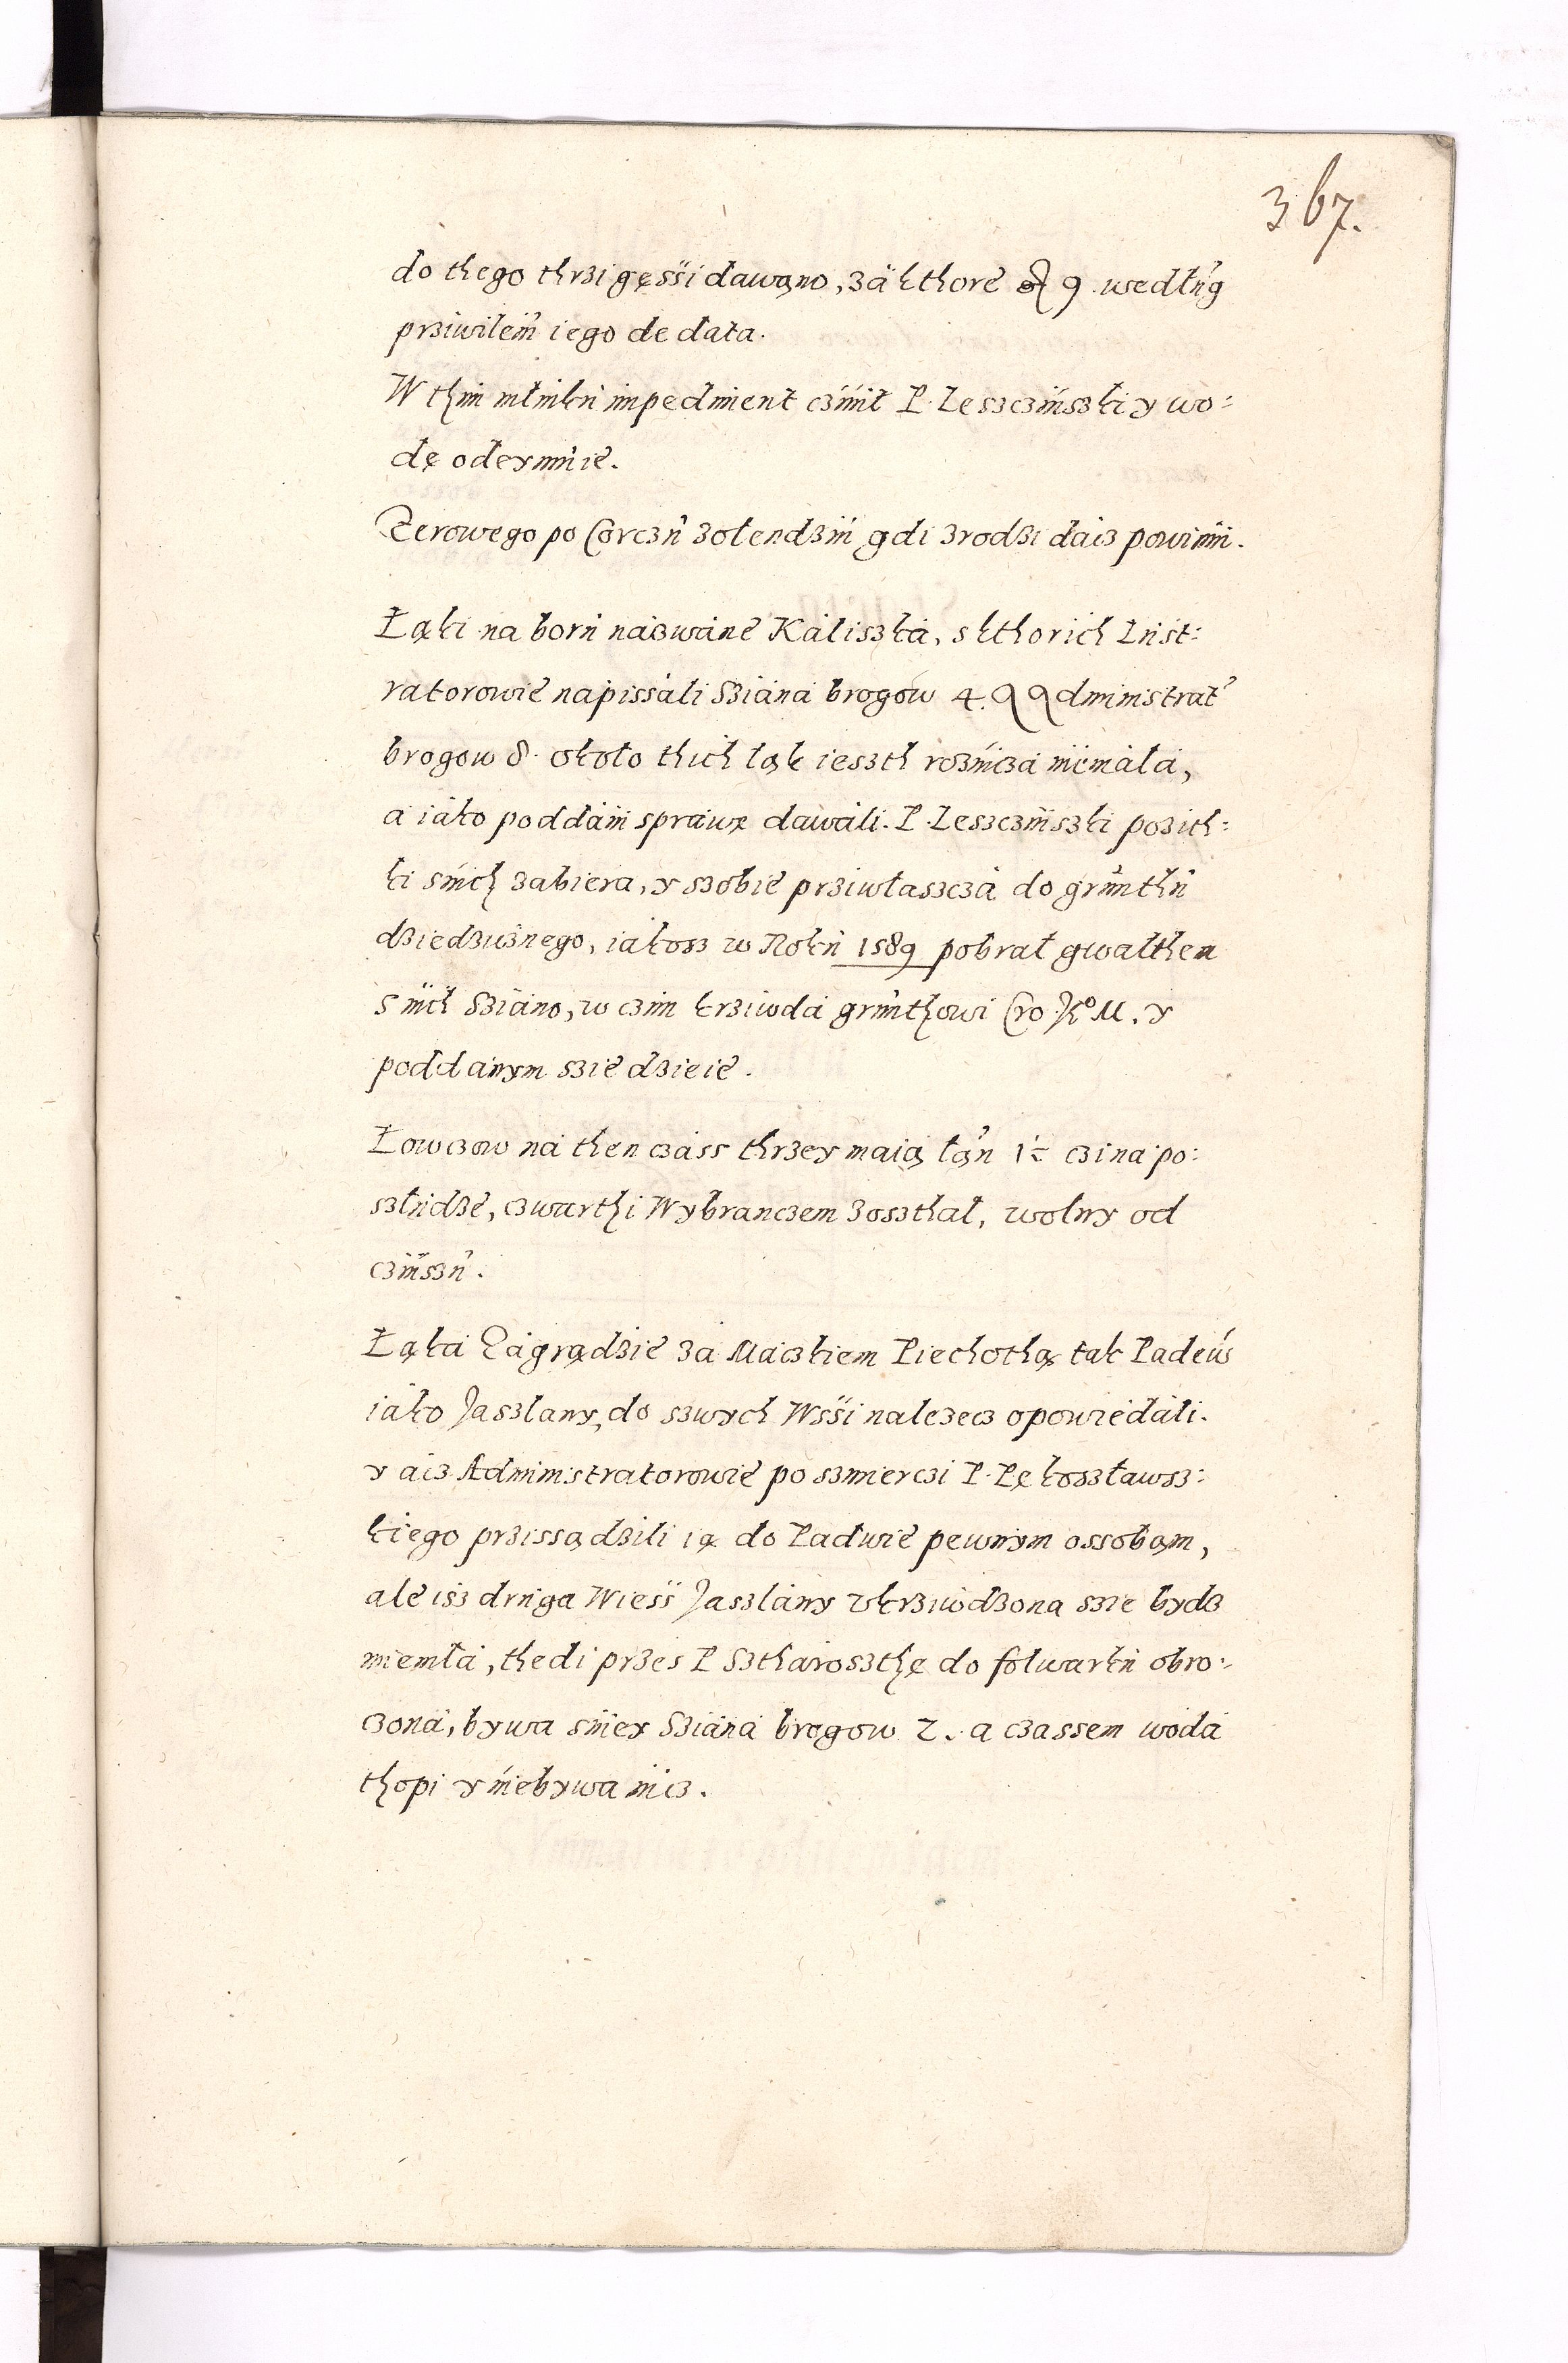 367.
do thego thrzi gęsśi dawąno, zá kthore 9. wedłúg
prziwileiú iego de data.
W thim młinkú impediment czinił P. Leszczinski y wo=
dę odeymuie.
Żerowego po Corczú żołendzin gdi zrodzi daicz powinni.
Łąki naború nazwáne Káliszká, s kthorich Lust=
ratorowie napissáli sziáná brogow 4. Administrat
brogow 8. około thich ląk ieszth rozniczá niemáłá,
a iáko poddáni spráwę dawáli. P. Leszczinszki pozith=
ki s nich zabiera, y szobie prziwłaszczá do grúnthú
dziedzicznego, iákosz w Rokú 1589 pobrał gwałthem
s nich Sziáno, w czim krziwdá grúnthowi Cro Ko M. y
poddanym szie dzieie.
Łowczow ná then czáss thrzey máią łán 1 czi na po=
szłudze, czwarthi Wybranczem zoszthał, wolny od
czinszú.
Łąká Zágrądzie za Maiczkiem Piechothą tak Padeúw
iáko Jaszlany, do szwych Wsśi nalezecz opowiedáli.
y aicz Administratorowie po szmierczi P. Pękoszławsz=
kiego przissądzili ią do Padwie pewnym ossobąm,
ale isz drúga Wieśś Jaszlány ukrziwdzona szie bydz
mieniłá, thedi przes P Sztharoszthę do folwarkú obro=
czoná, bywa s niey Sziáná brogow 2. a czassem wodá
thopi y niebywa nicz.